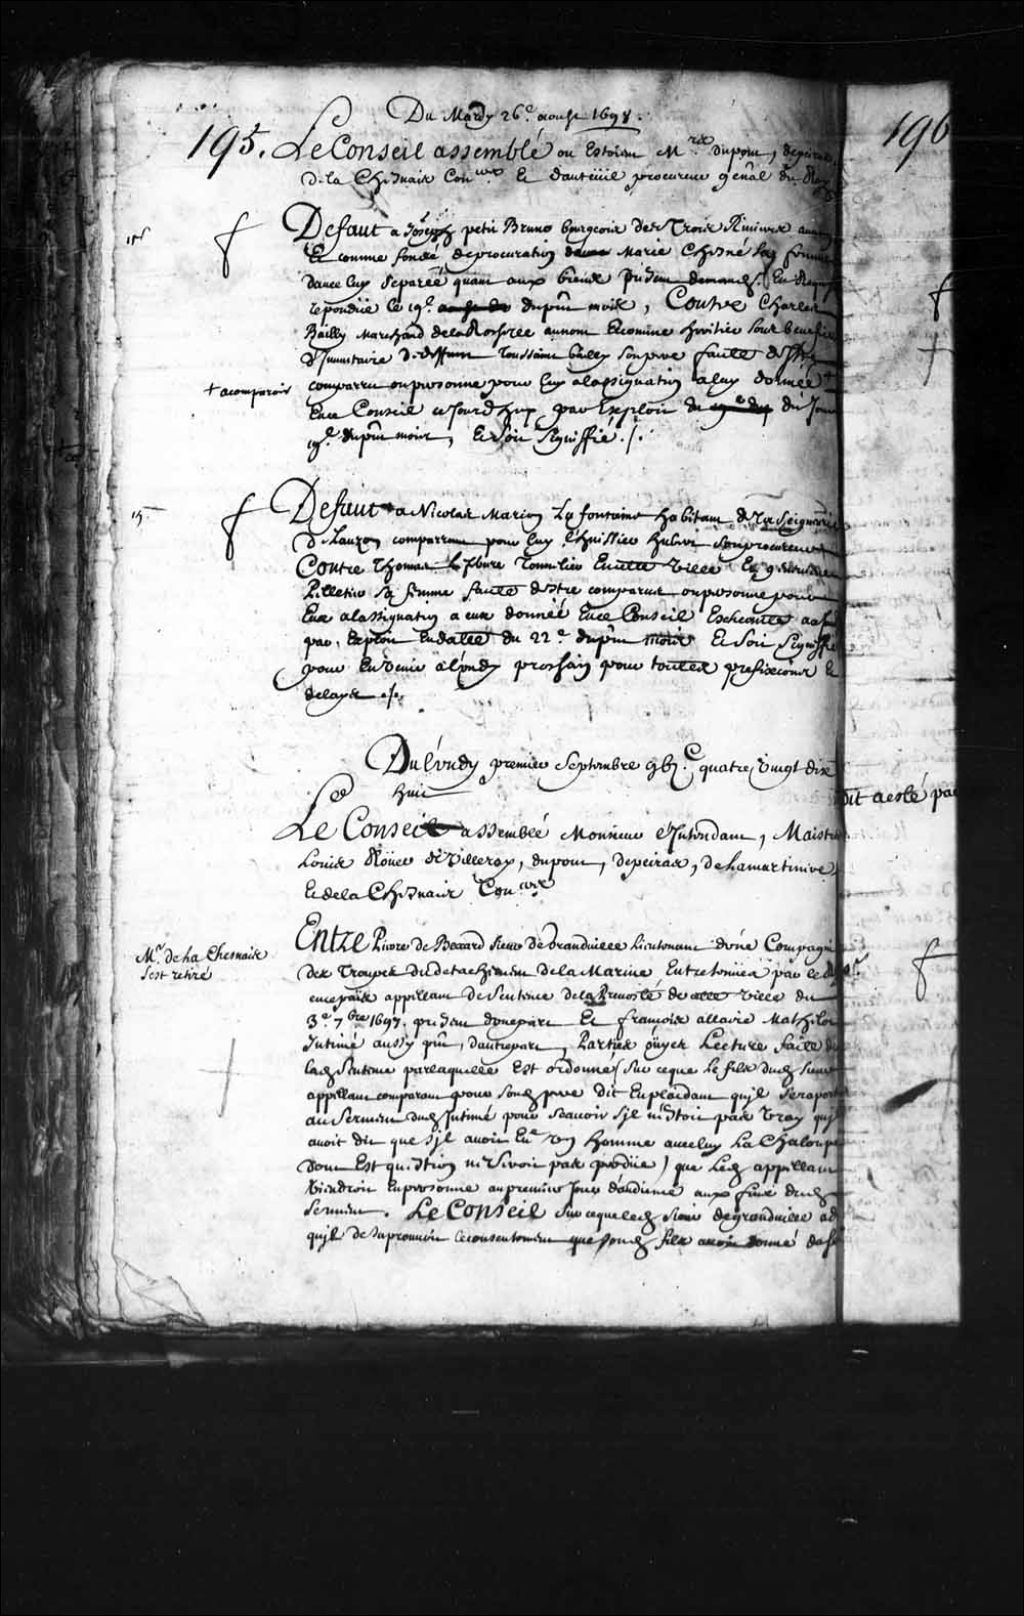 Du Mardy 26e. aoust 1698.
195. Le Conseil assemblé ou Estoient Mrs. dupont, depeiras
196
de la Chesnaie Coners Et dauteüil procureur genâl du Roy
Defaut a Joseph petit Bruno bourgeois des Trois Rivieres au nom
15s
Et comme fondé de procuration Marie Chesné sa femme
davec luy separée quant aux biens demandr. En Requeste
repondüe le 19e. du pnt mois, Contre Charles
Bailly Marchand de la Rochelle au nom Et comme heritier sous benefice
d'Inventaire de deffunt Toussaint bailly son pere faute destre
comparu ou personne pour luy a lassignation a luy donnée +
+ a comparoir
En ce Conseil ce Jourd'huy par Exploit du
19e. du pnt mois, Et soit signiffié ./.
Defaut a Nicolas Marion La fontaine habitant de la Seigneurie
15s
de Lauzon comparant pour luy l'huissier hubert son procureur
Contre Thomas Lefebvre Tonnelier En cette ville Et genevieve
Pelletier sa femme faute destre comparus ou personne pour
Eux a lassignation a eux donnée En ce Conseil
par Exploit En datte du 22e. du pnt mois Et soit signiffié
pour En Venir a lundy prochain pour toutes prefixcions Et
delays ./.
Du lundy premier Septembre gbjc. quatre vingt dix
huit
dit a esté par
Le Conseil assemblé Monsieur L'Intendant, Maistres
Louis Roüer de Villeray, dupont, depeiras, de la martiniere
Et de la Chesnaie Coners
Entre Pierre de Becard Sieur de Grandville Lieutenant d'une Compagnie
Mr. de la Chesnaie
s'est retiré
des Troupes du detachement de la Marine Entretenües par le Roy
en ce païs appellant de Sentence de la Prevosté de cette ville du
3e. 7bre 1697. present d'une part Et francois allaire Mathelot
Intimé aussy pnt, d'autre part, Parties oüyes Lecture faite de
lade Sentence par laquelle Est ordonné (sur ce que le fils dud. sieur
appellant comparant pour sond. pere dit En plaidant qu'il se raportoit
au serment dud. Intimé pour scavoir s'il n'estoit pas vray qu'il
avoit dit que s'il avoit Eu Un homme avec luy La Chaloupe
dont Est question ne seroit pas perdüe) que led. appellant
viendroit En personne au premier Jour d'audience aux fins dud.
serment. Le Conseil sur ce que led. sieur de grandville a dit
qu'il desaprouvoit le consentement que sond. fils avoit donné